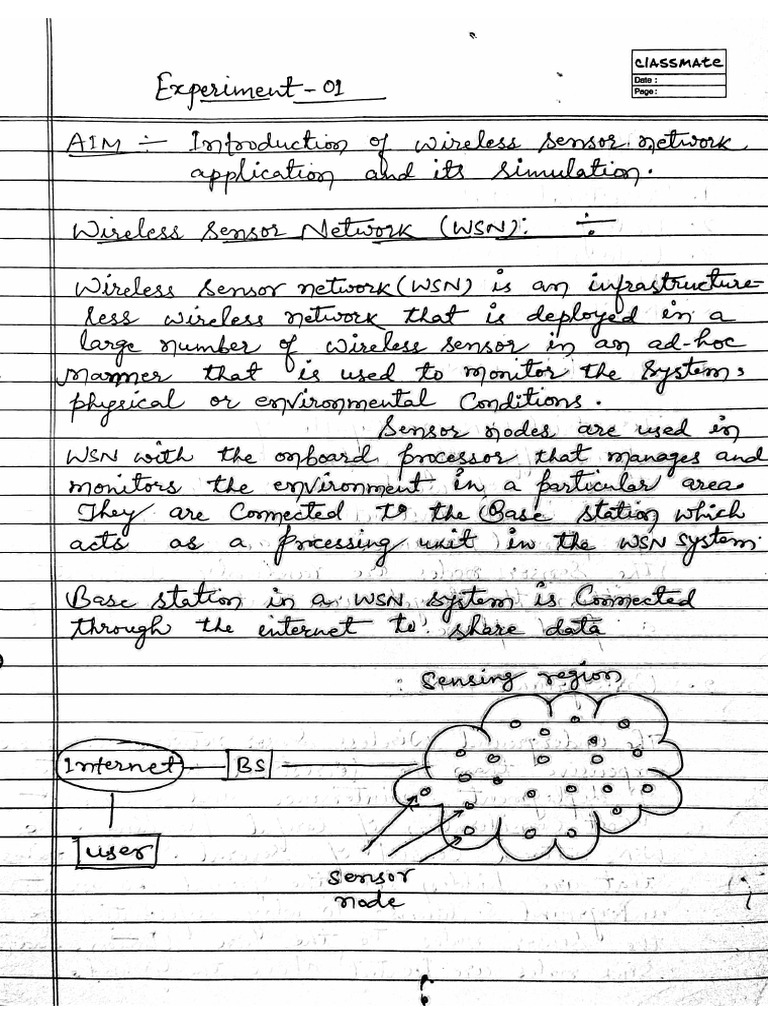 classmate
Date :
Page :
Experiment - 01
AIM ÷ Introduction of wireless sensor network
application and its simulation.
Wireless Sensor Network (WSN): ÷
Wireless sensor network (WSN) is an infrastructure-
less wireless network that is deployed in a
large number of wireless sensor in an ad-hoc
manner that is used to monitor the system,
physical or environmental conditions.
Sensor nodes are used in
WSN with the onboard processor that manages and
monitors the environment in a particular area.
They are connected to the Base station which
acts as a processing unit in the WSN system.
Base station in a WSN system is Connected
through the internet to share data
Sensing region
Internet BS
user
sensor
node